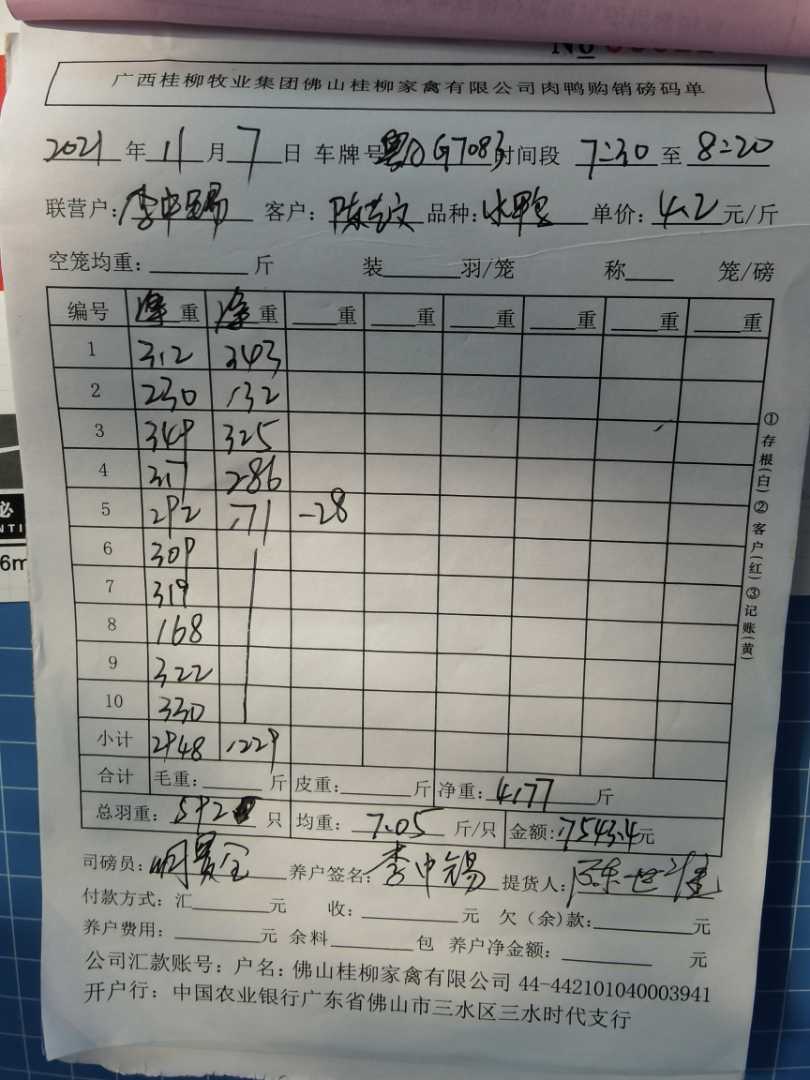 No
广西桂柳牧业集团佛山桂柳家禽有限公司肉鸭购销磅码单
2021年11月7日 车牌号 G7083 时间段 7:30 至 8:20
联营户: 李中锡 客户: 品种: 水鸭 单价: 4.2 元/斤
空笼均重: 斤 装 羽/笼 称 笼/磅
编号 净重 净重 重 重 重 重 重 重
1 312 343
2 230 132
3 349 325
4 317 286
5 292 171 -28
6 309
7 319
8 168
9 322
10 330
小计 2948 1229
合计 毛重: 斤 皮重: 斤 净重: 4177 斤
总羽重: 592 只 均重: 7.05 斤/只 金额: 17543.4元
司磅员: 养户签名: 李中锡 提货人: 陈世
付款方式: 汇 元 收: 元 欠(余)款: 元
养户费用: 元 余料 包 养户净金额: 元
公司汇款账号: 户名: 佛山桂柳家禽有限公司 44-442101040003941
开户行: 中国农业银行广东省佛山市三水区三水时代支行
①存根(白)②客户(红)③记账(黄)
必
NTI
6m